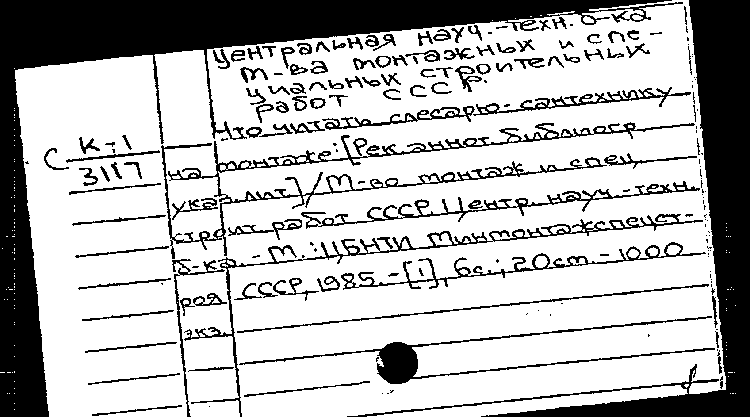 Центральная науч.-техн. б-ка
М-ва монтажных и спе-
циальных строительных
работ СССР.
Что читать слесарю-сантехнику
С К-1
3117
на монтаже: [Рек. аннот. библиогр.
указ. лит.] / М-во монтаж. и спец.
строит. работ СССР. Центр. науч.-техн.
б-ка. - М.: ЦБНТИ Минмонтажспецст-
роя СССР, 1985. - [1], 6с.; 20см. - 1000
экз.